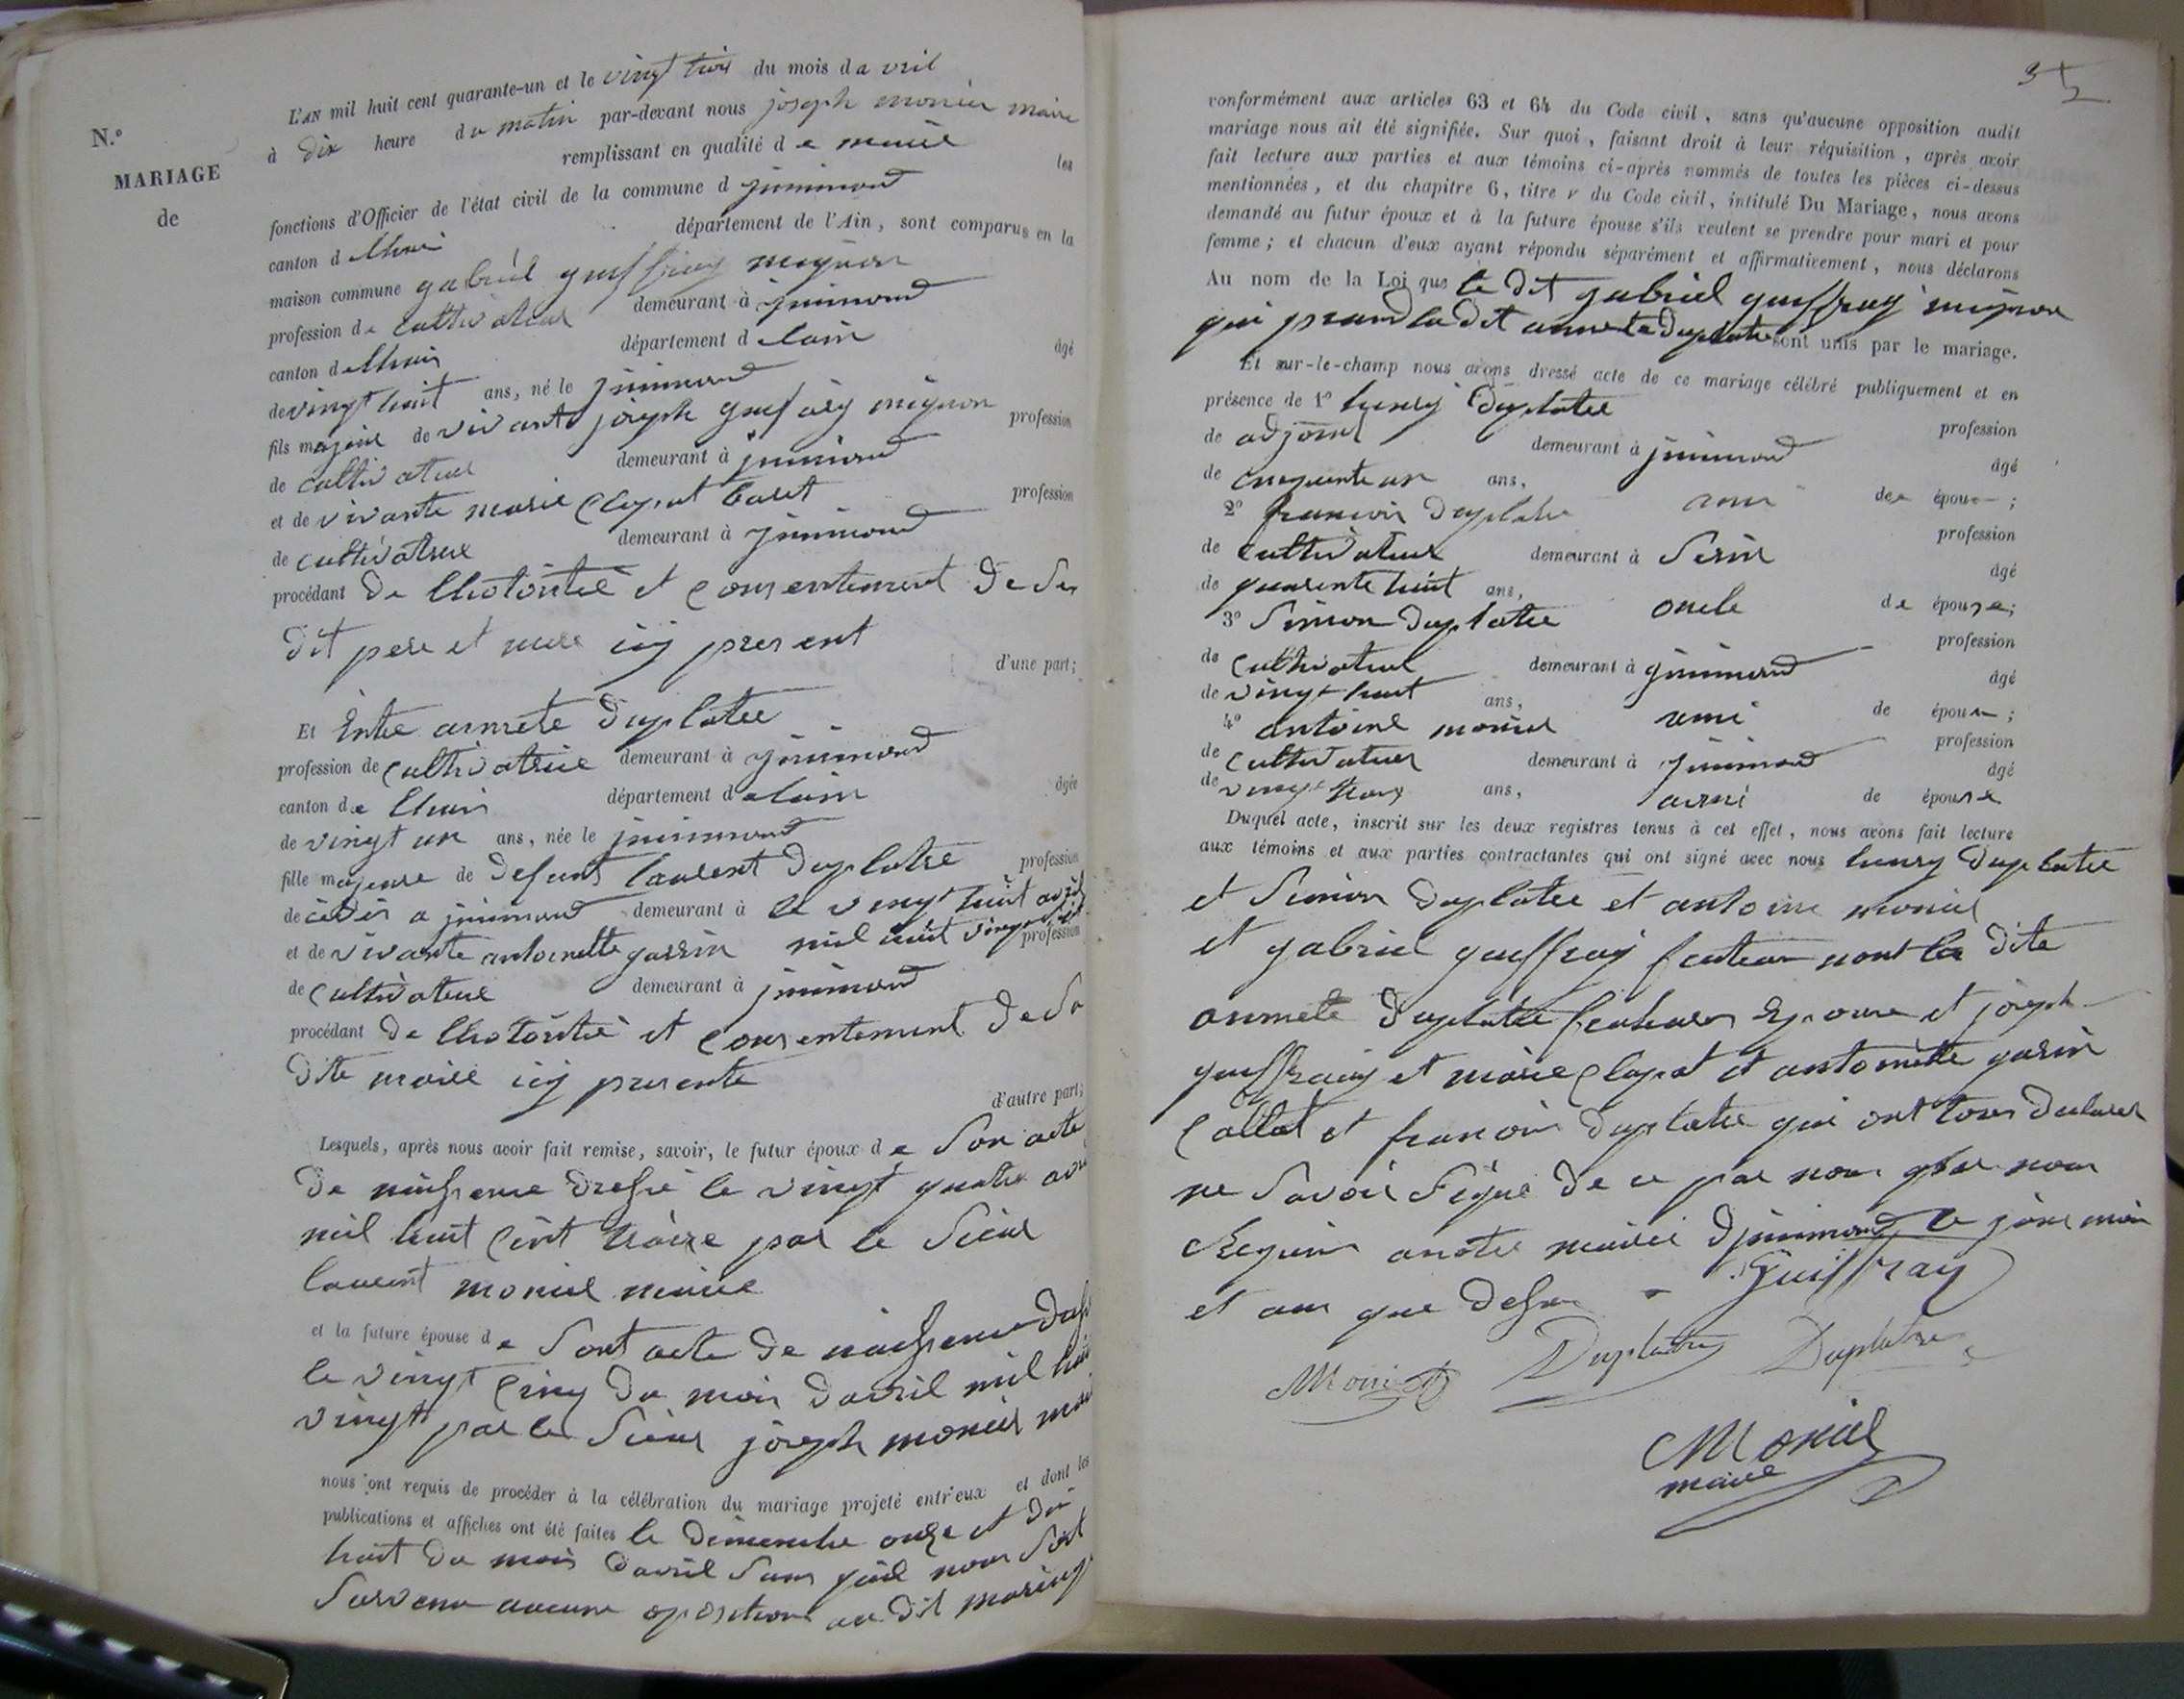 N.º
MARIAGE
de
L'AN mil huit cent quarante-un et le vingt trois du mois da vril
à dix heure du matin par-devant nous joseph monier maire
remplissant en qualité de maire les
fonctions d'Officier de l'état civil de la commune d jnnimond
canton d lhuis département de l'Ain, sont comparus en la
maison commune gabriel guiffray mignon
profession de cultivateur demeurant à jnnimond
canton d lhuis département d elain âgé
de vingt huit ans, né le jnnimond
fils majeur de vivant joseph guifray mignon profession
de cultivateur demeurant à jnnimond
et de vivante marie clapat profession
de cultivatrice demeurant à jnnimond
procédant de lhotoritée et consentement de ses
dit pere et mere icy present
d'une part;
Et Entre annete duplatre
profession de cultivatrice demeurant à jnnimond
canton de lhuis département d elain âgée
de vingt un ans, née le jnnimond
fille majeure de defunt laurent duplatre profession
de a jnnimond demeurant à le vingt huit
et de vivante antoinette gassin mil huit profession
de cultivatrice demeurant à jnnimond
procédant de lhotoritée et consentement de sa
dite maire icy presente
d'autre part;
Lesquels, après nous avoir fait remise, savoir, le futur époux de son acte
de naissance dressé le vingt quatre
mil huit cent traize par le sieur
laurent monier maire
et la future épouse de sont acte de naissance
le vingt cinq du mois davril mil
vingt par le sieur joseph monier
nous ont requis de procéder à la célébration du mariage projeté entr'eux et dont les
publications et affiches ont été faites le dimenche onze et dix
huit du mois davril sans quil nous soit
survenu aucune oposition au dit mariage
35
conformément aux articles 63 et 64 du Code civil, sans qu'aucune opposition audit
mariage nous ait été signifiée. Sur quoi, faisant droit à leur réquisition, après avoir
fait lecture aux parties et aux témoins ci-après nommés de toutes les pièces ci-dessus
mentionnées, et du chapitre 6, titre v du Code civil, intitulé Du Mariage, nous avons
demandé au futur époux et à la future épouse s'ils veulent se prendre pour mari et pour
femme; et chacun d'eux ayant répondu séparément et affirmativement, nous déclarons
Au nom de la Loi que le dit gabriel guiffray mignon
qui prand la dit annete duplatre sont unis par le mariage.
Et sur-le-champ nous avons dressé acte de ce mariage célébré publiquement et en
présence de 1º henry duplatre
de adjoint demeurant à jnnimond profession
de cinquante un ans, âgé
2º francois duplatre ami des épou ;
de cultivateur demeurant à Serin profession
de quarente huit ans, âgé
3º Simon duplatre oncle de épouse;
de cultivateur demeurant à jnnimond profession
de vingt huit ans, âgé
4º antoine monier ami de épou ;
de cultivateur demeurant à jnnimond profession
de vingt ans, ami de épouse âgé
Duquel acte, inscrit sur les deux registres tenus à cet effet, nous avons fait lecture
aux témoins et aux parties contractantes qui ont signé avec nous henry duplatre
et Simon duplatre et antoine monier
et gabriel guiffray nont la dite
annete duplatre Epouse et joseph
guiffray et marie clapat et antoinette gasin
et francois duplatre qui ont tous declarer
ne savoir signé de ce par nous
Requis anotre mairie djnnimond le jour mois
et ans que dessus - Guiffray
Monier Duplatre Duplatre
Monier
maire